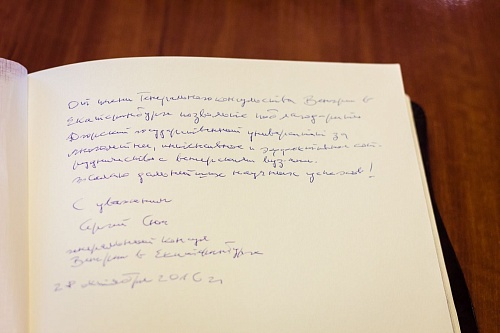 От имени Генерального консульства Венгрии в
Екатеринбурге позвольте поблагодарить
государственный университет за
многолетнее, интенсивное и эффективное сот-
рудничество с венгерскими вузами.
Желаю дальнейших научных успехов!
С уважением
Сергей Сюч
генеральный консул
Венгрии в Екатеринбурге
28 октября 2016 г.